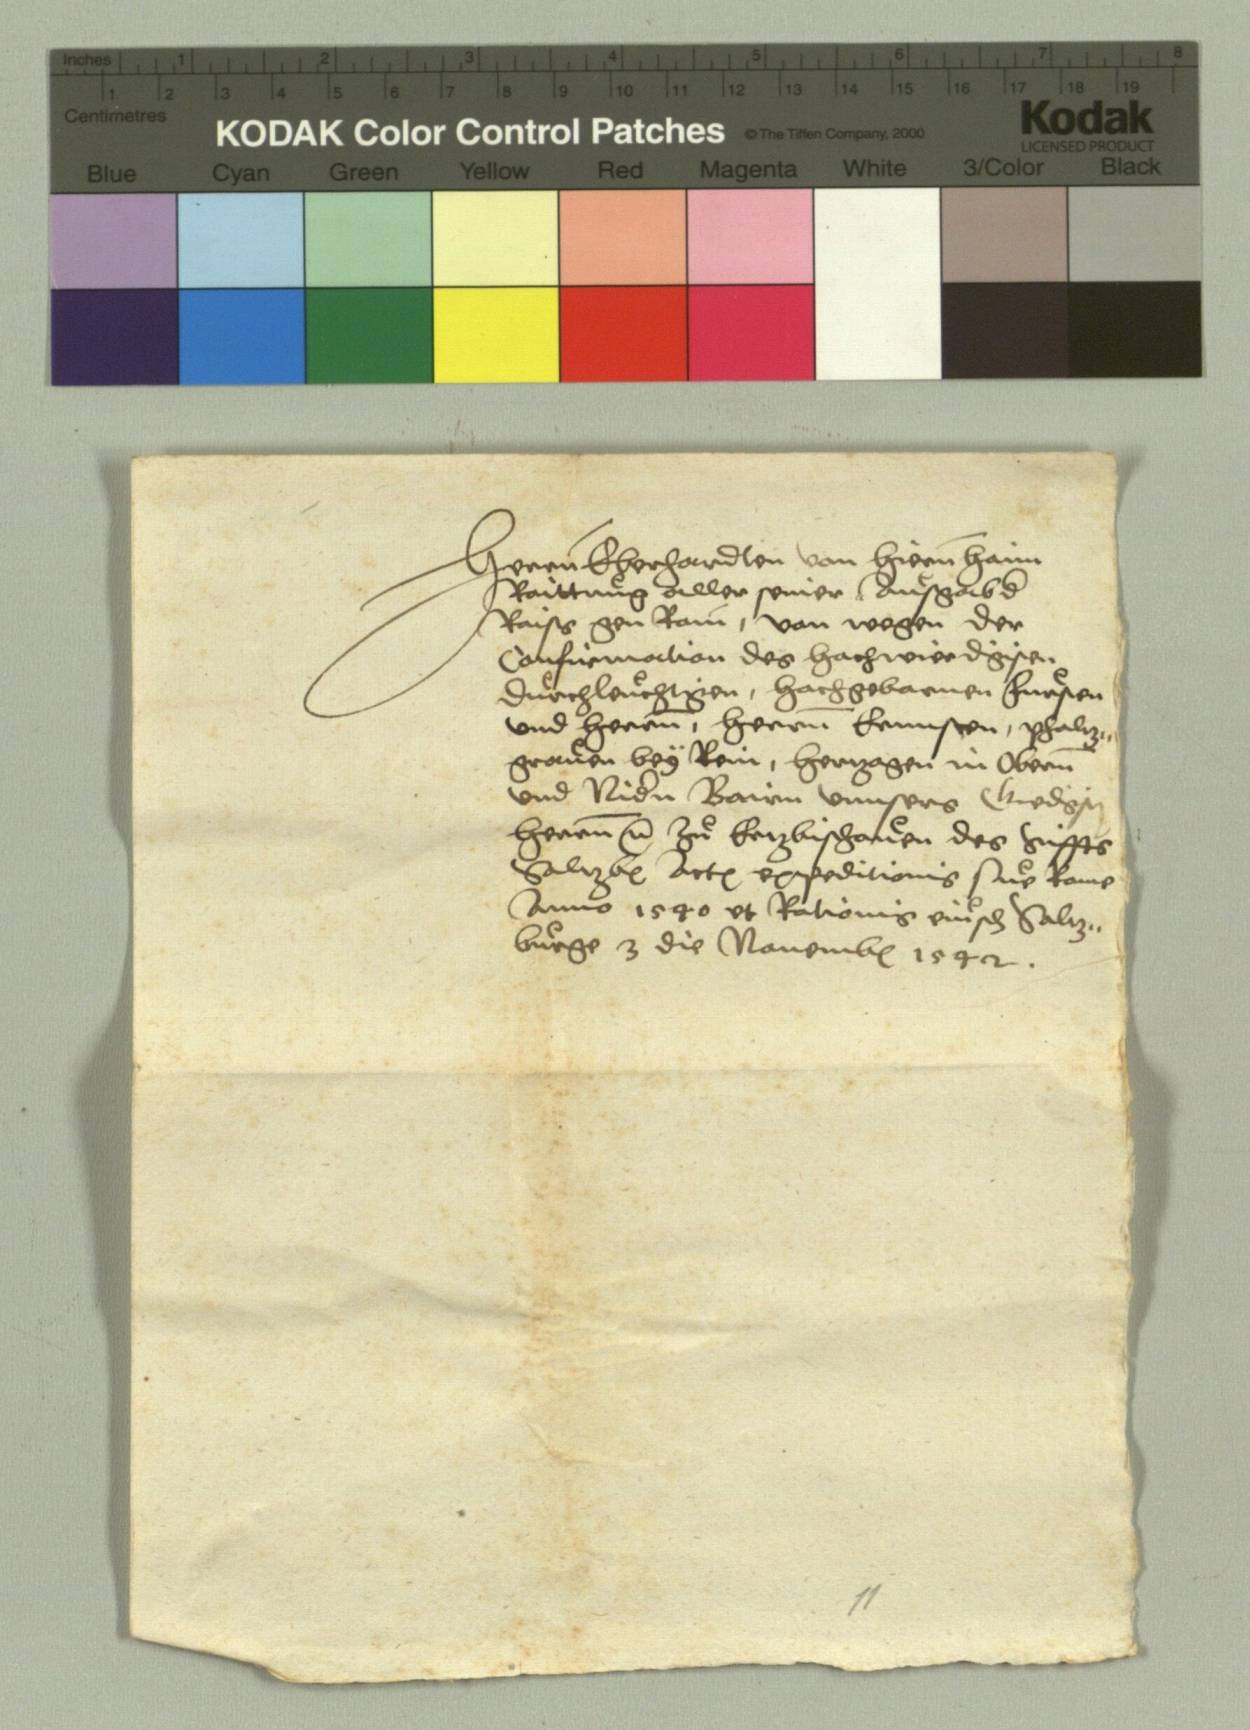 Inches 1 2 3 4 5 6 7 8
1 2 3 4 5 6 7 8 9 10 11 12 13 14 15 16 17 18 19
Centimetres
KODAK Color Control Patches © The Tiffen Company, 2000 Kodak
LICENSED PRODUCT
Blue Cyan Green Yellow Red Magenta White 3/Color Black
Herrn Eberhardten von Hiernhaim
Raittung aller seiner Ausgab d
Raiss gen Rom, von wegen der
Confirmation des hochwierdigisten
durchleuchtigen, hochgebornen Fursten
und herrn, herrn Ernnsten, Phaltz-
graven bey Rein, hertzogen in Obern
und Nidn Bairn unnsers Gnedigst
herrn zu Ertzbischoven des Stiffts
Saltzb Act expeditionis sue Rome
Anno 1540 et Rationis Saltz-
burge 3 die Novemb 1542.
11